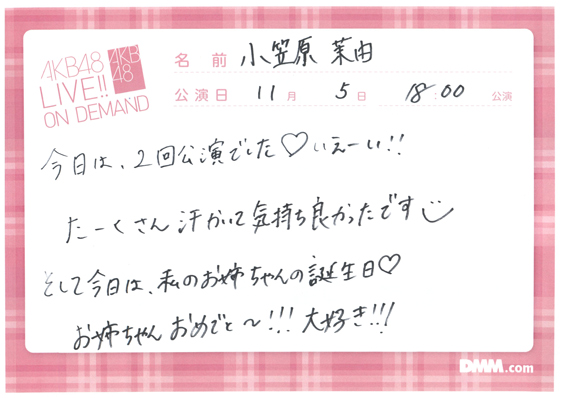 AKB48
LIVE!!
ON DEMAND
AKB
48
名前 小笠原 茉由
公演日 11月 5日 18:00 公演
今日は、2回公演でした♡いえーい!!
たーくさん汗かいて気持ち良かったです
そして今日は、私のお姉ちゃんの誕生日♡
お姉ちゃんおめでと〜!!! 大好き!!!
DMM.com